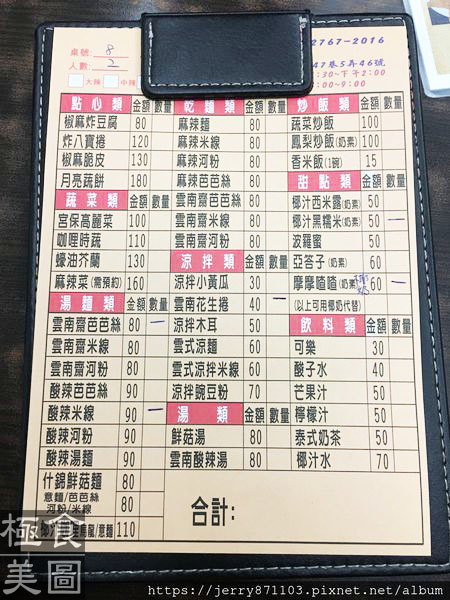 桌號: 8
人數: 2
2767-2016
47巷5弄46號
:30~下午2:00
:00~9:00
大辣 小辣
點心類 金額 數量
椒麻炸豆腐 80
炸八寶捲 120
椒麻脆皮 130
月亮蔬餅 180
蔬菜類 金額 數量
宮保高麗菜 100
咖哩時蔬 110
蠔油芥蘭 130
麻辣菜(需預約) 160
湯麵類 金額 數量
雲南齋芭芭絲 80 一
雲南齋米線 80
雲南齋河粉 80
酸辣芭芭絲 90
酸辣米線 90 一
酸辣河粉 90
酸辣湯麵 90
什錦鮮菇麵
意麵/芭芭絲
河粉/米線 80
烏龍/意麵 110
乾麵類 金額 數量
麻辣麵 80
麻辣米線 80
麻辣河粉 80
麻辣芭芭絲 80
雲南齋芭芭絲 80
雲南齋米線 80
雲南齋河粉 80
涼拌類 金額 數量
涼拌小黃瓜 30
雲南花生捲 40 一
涼拌木耳 50
雲式涼麵 60
雲式涼拌米線 60
涼拌豌豆粉 70
湯類 金額 數量
鮮菇湯 80
雲南酸辣湯 80
合計:
炒飯類 金額 數量
蔬菜炒飯 100
鳳梨炒飯(奶素) 100
香米飯(1碗) 15
甜點類 金額 數量
椰汁西米露(奶素) 50
椰汁黑糯米(奶素) 50 一
波羅蜜 50
亞答子(奶素) 60
摩摩喳喳(奶素) 60 一
(以上可用椰奶代替)
飲料類 金額 數量
可樂 30
酸子水 40
芒果汁 50
檸檬汁 50
泰式奶茶 50
椰汁水 70
極食
美圖
https://jerry871103.pixnet.net/album